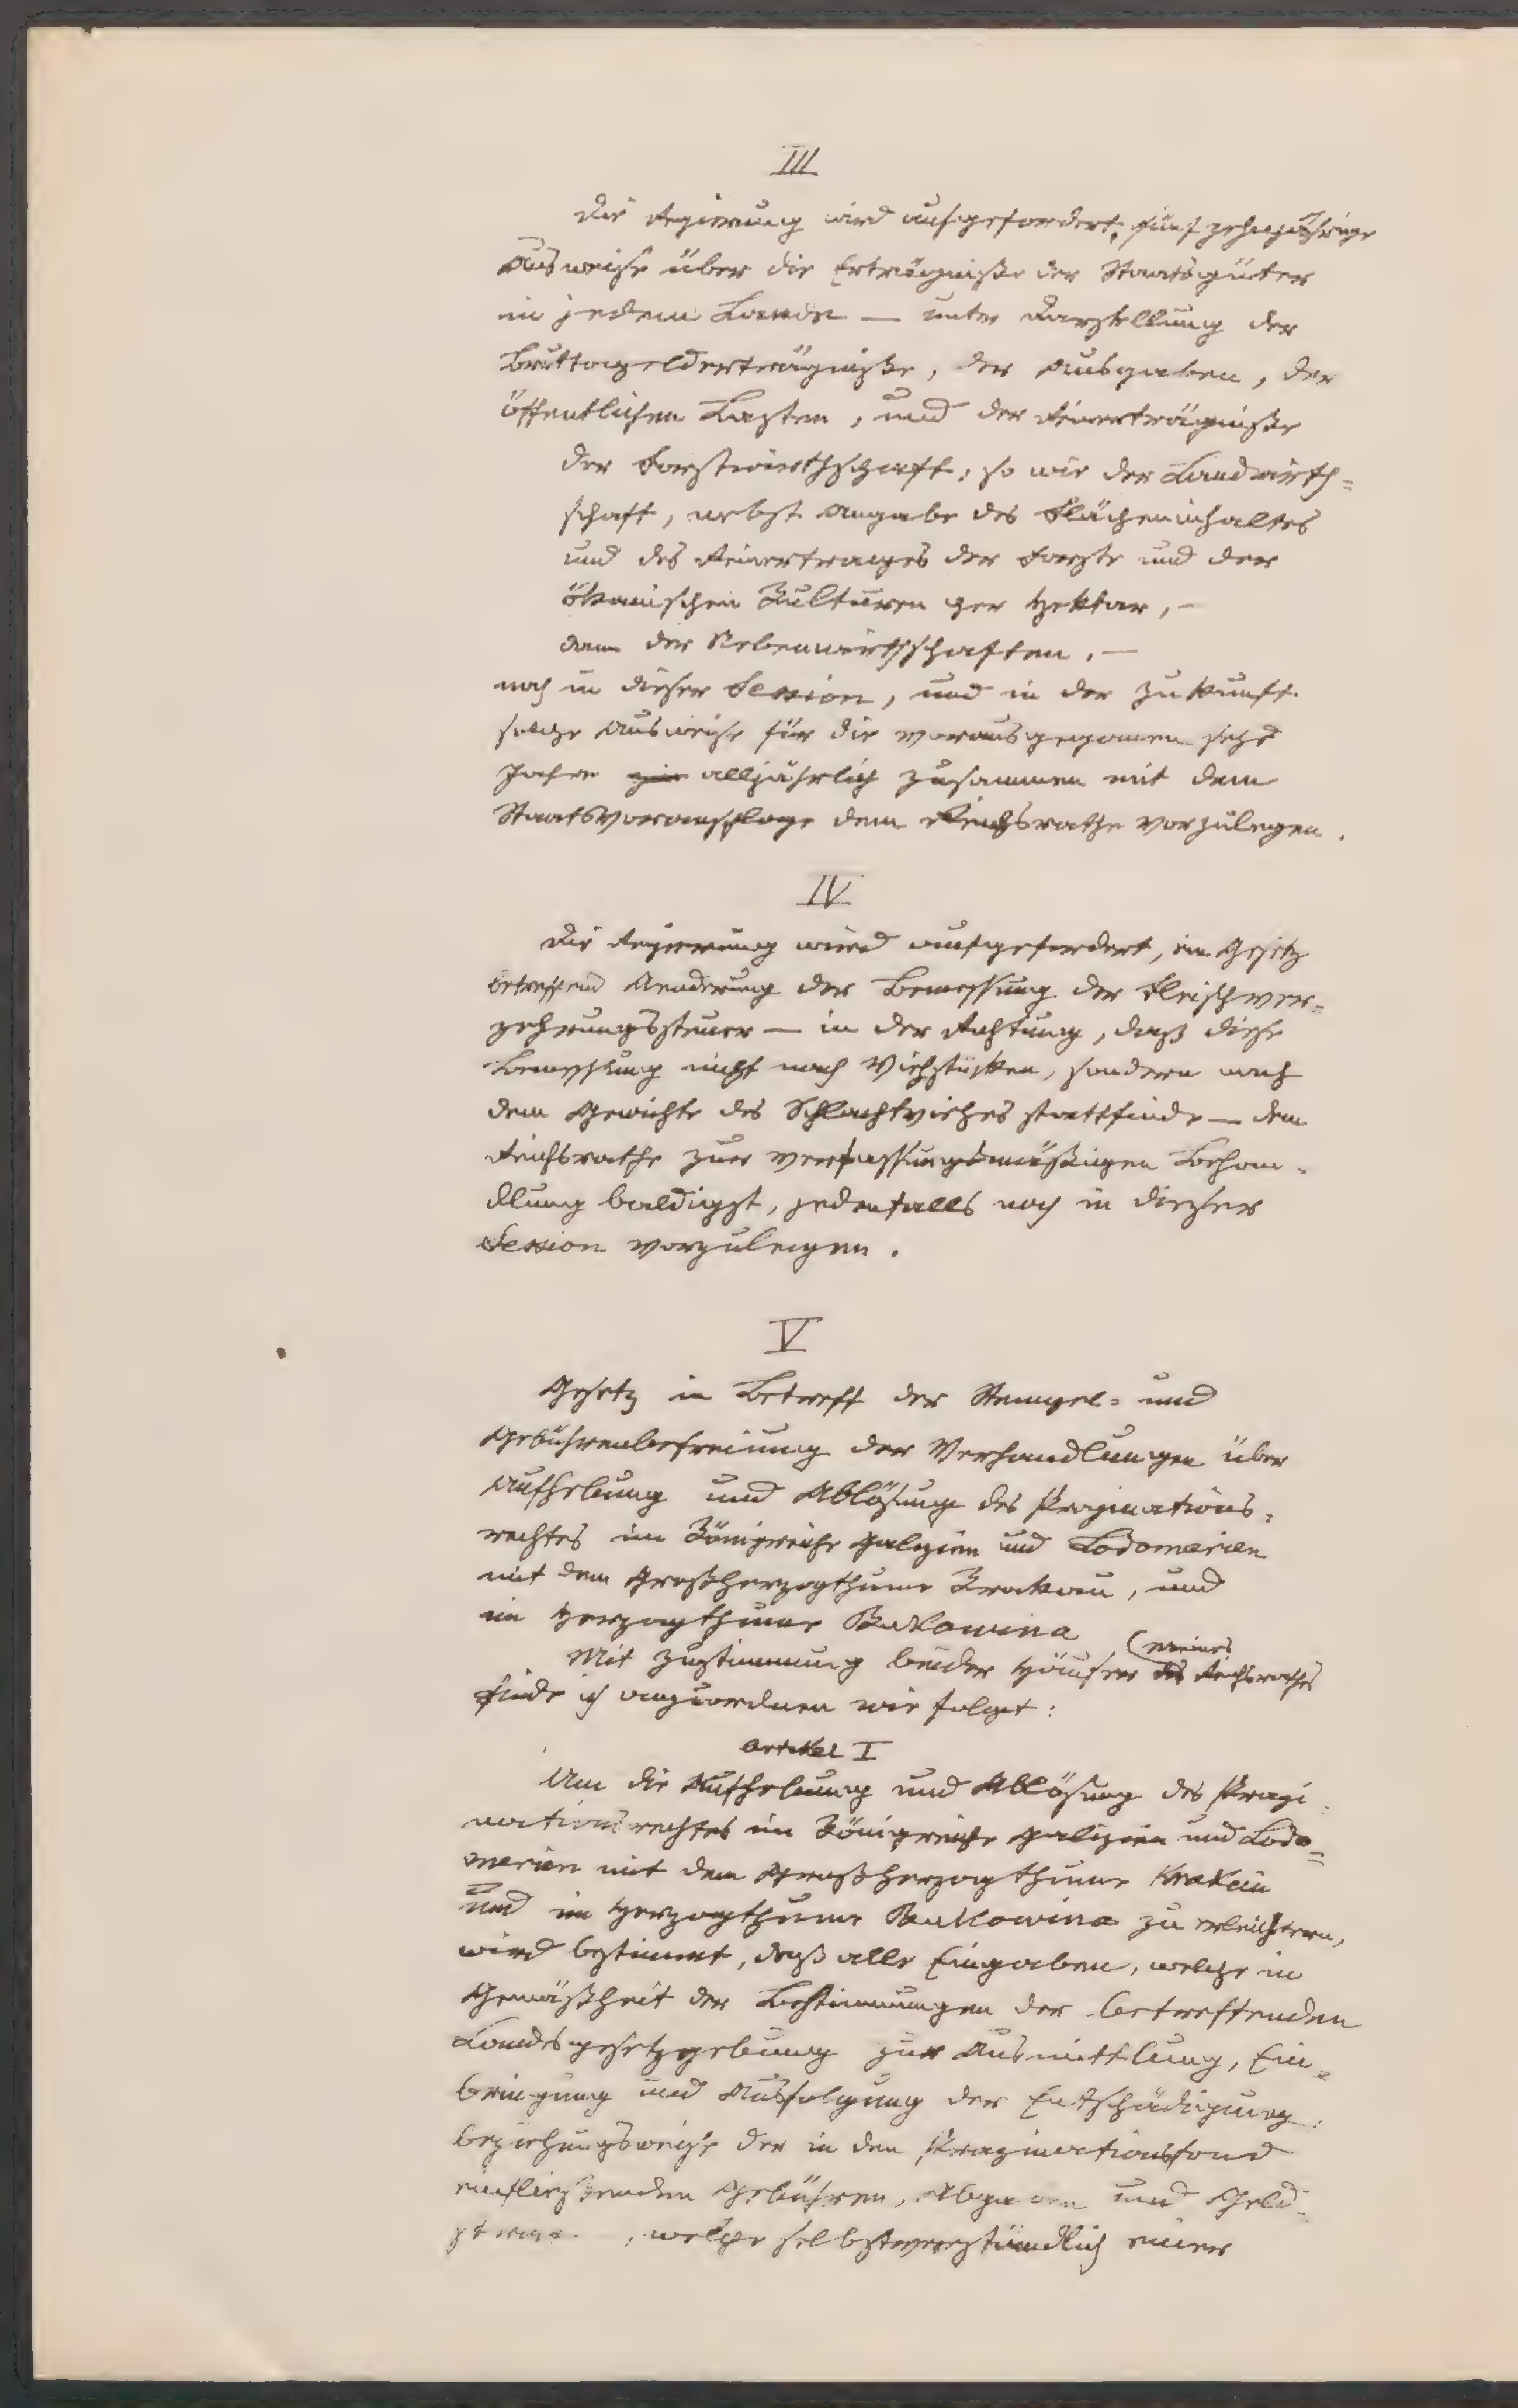 III
Die Regierung wird aufgefordert, fünfzehnjährige
Ausweise über die Erträgnisse der Staatsgüter
in jedem Lande — unter Darstellung der
Bruttogelderträgnisse, der Ausgaben, der
öffentlichen Lasten, und der Reinerträgnisse
der Forstwirthschaft, so wie der Landwirth=
schaft, nebst Angabe des Flächeninhaltes
und des Reinertrages der Forste und der
ökonomischen Kulturen per Hektar, —
dann der Nebenwirthschaften, —
noch in dieser Session, und in der Zukunft
solche Ausweise für die vorausgegangenen
Jahre alljährlich zusammen mit dem
Staatsvoranschlage dem Reichsrathe vorzulegen.
IV
Die Regierung wird aufgefordert, ein Gesetz
betreffend Aenderung der Bemessung der Fleischver=
zehrungssteuer — in der Richtung, daß diese
Bemessung nicht nach Viehstücken, sondern nach
dem Gewichte des Schlachtviehes stattfinde — dem
Reichsrathe zur verfassungsmäßigen Behan=
dlung baldigst, jedenfalls noch in dieser
Session vorzulegen.
V
Gesetz in Betreff der Stempel= und
Gebührenbefreiung der Verhandlungen über
Aufhebung und Ablösung des Propinations=
rechtes im Königreiche Galizien und Lodomerien
mit dem Großherzogthume Krakau, und
im Herzogthume Bukowina
(meines
Mit Zustimmung beider Häuser des Reichsrathes
finde ich anzuordnen wie folgt:
Artikel I
Um die Aufhebung und Ablösung des Propi=
nationsrechtes im Königreiche Galizien und Lodo=
merien mit dem Großherzogthume Krakau
und im Herzogthume Bukowina zu erleichtern,
wird bestimmt, daß alle Eingaben, welche in
Gemäßheit der Bestimmungen der betreffenden
Landesgesetzgebung zur Ausmittlung, Ein=
bringung und Ausfolgung der Entschädigung,
beziehungsweise der in den Propinationsfond
einfließenden Gebühren, Abgaben und Geld=
, welche selbstverständlich einer